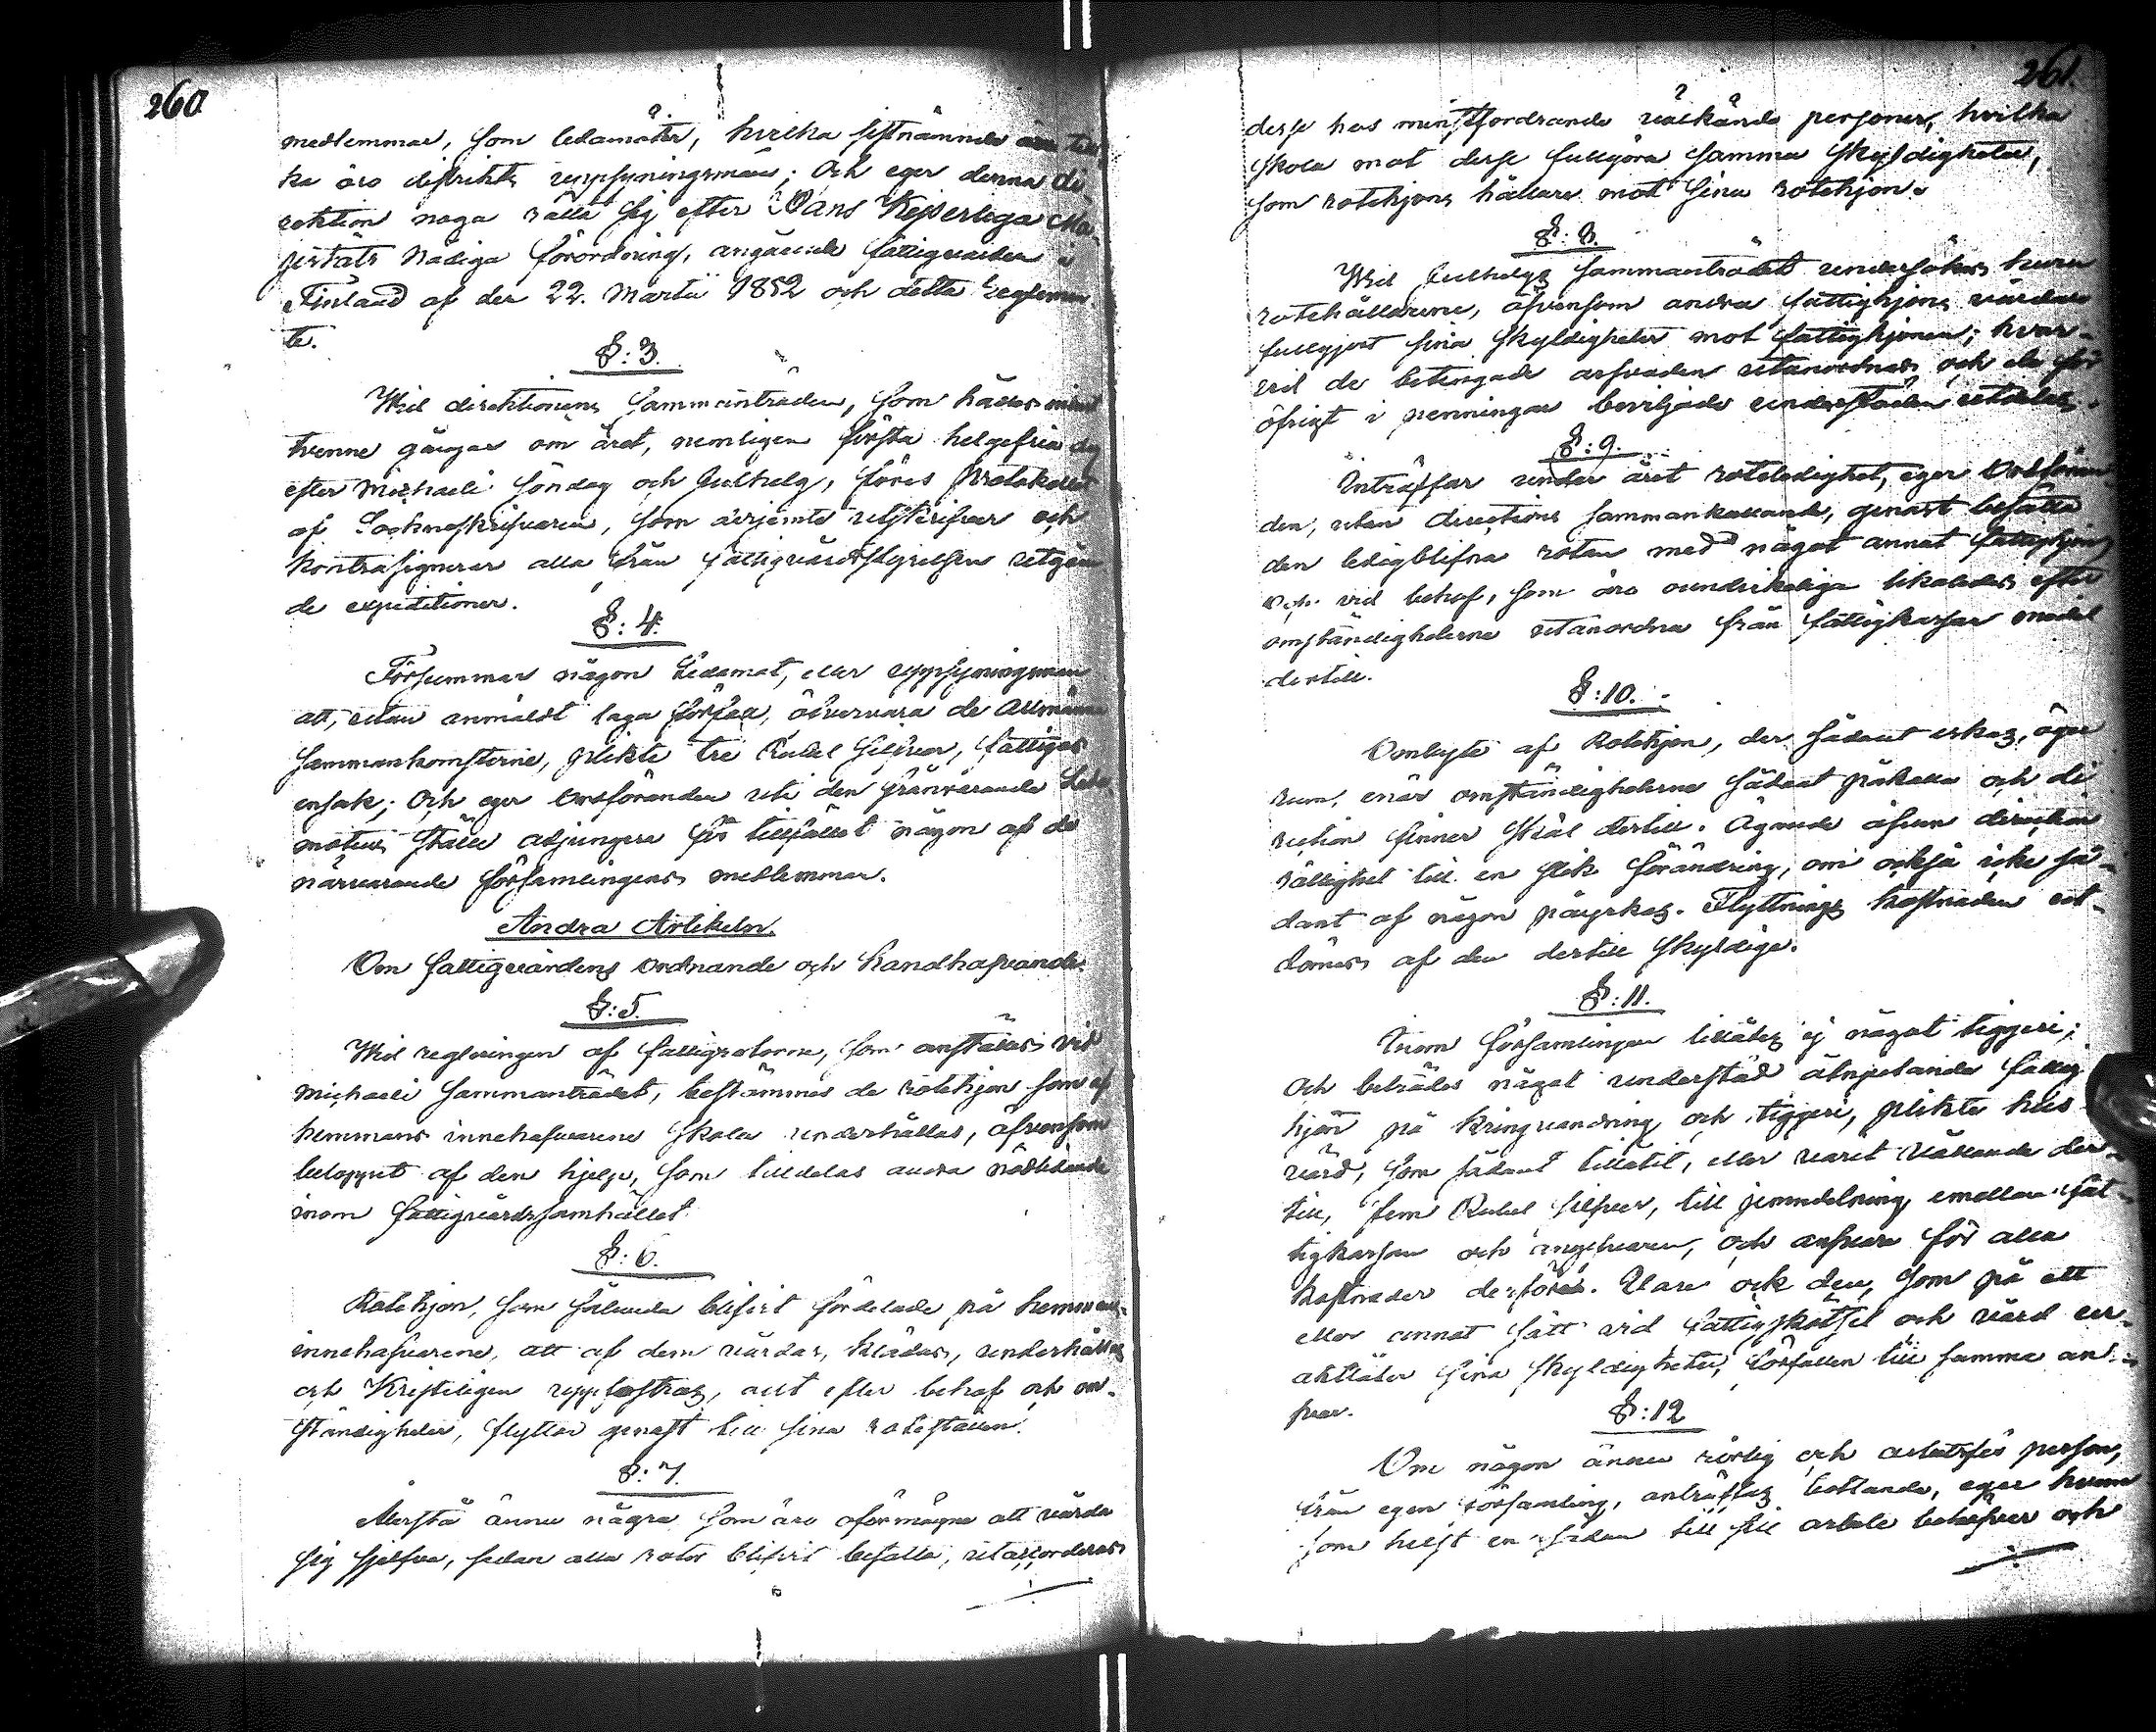 260
medlemmar, som ledamöter, hvilka sistnämnde äfven till
ka äro distrikts uppsyningsmän; Och eger denna di
rektion noga ställa sig efter Hans Kejserliga Ma-
jestäts Nådiga förordning, angående fattigvården i
Finland af der 22. Martii 1852 och detta Reglemen-
te.
§: 3.
Wid direktionens sammanträden, som hålles minst
trenne gångor om året, nemligen första helgefria dag
efter Michaeli söndag och Julhelg, föres Protokollet
af Sockneskrifvaren, som derjemte utskrifver och
kontrasignerar alla från fattigvårdsstyrelsen utgåen
de expeditioner.
§: 4.
Försummar någon Ledamot, eller uppsyningsman
att, utan anmäldt laga förfall, öfvervara de Allmänna
sammankomsterne, plikte tre Rubel Silfver, fattigas
ensak; Och eger Ordföranden uti den frånvarande Leda-
motens ställe adjungera för tillfället någon af de
närvarande församlingens medlemmar.
Andra Artikeln.
Om fattigvårdens ordnande och handhafvande.
§: 5.
Wid regleringen af fattigrotorne, som anställes vid
Michaeli sammanträdet, bestämmes de rotehjon som af
hemmans innehafvarene skola underhållas, äfvensom
beloppet af den hjelp, som tilldelas andra nödlidande
inom fattigvårdssamhället.
§: 6.
Rotehjon, som sålunda blifvit fördelade på hemmans-
innehafvarene, att af dem vårdas, klädas, underhållas
och Kristeligen uppfostras, allt efter behof och om-
ständigheter, flyttar genast till sina roteställen.
§: 7.
Återstå ännu några som äro oförmögna att vårda
sig sjelfva, sedan alla rotor blifvit besatta, utackorderas
261.
desse hos minstfordrande välkända personer, hvilka
skola mot desse fullgöra samma skyldigheter,
som rotehjons hållare mot sina rotehjon.
§: 8.
Wid Julhelgs sammanträdet undersökes huru
rotehållarene, äfvensom andra fattighjons vårdare
fullgjort sina skyldigheter mot fattighjonen; hvar-
vid de betingade arfvoden utanordnas och de för
öfrigt i penningar beviljade understöden utdelas.
§: 9.
Inträffar under året roteledighet, eger Ordföran-
den, utan directions sammankallande, genast besätta
den ledigblifna rotan med något annat fattighjon
Och vid behof, som äro oundvikeliga likaledes efter
omständigheterne utanordna från fattigkassan medel
dertill.
§: 10.
Ombyte af Rotehjon, der sådant erkas, äger
rum, enär omständigheterne sådant påkalla och di
rection finner skäl dertill. Ägande äfven direction
rättighet till en slik förändring, om också icke så-
dant af någon påyrkas. Flyttnings kostnaden ut-
dömes af den dertill skyldige.
§: 11.
Inom församlingen tillåtes ej något tiggeri;
Och beträdes något understöd åtnjutande fattig
hjon på kringvandring och tiggeri, plikte hus-
värd, som sådant tillåtit, eller varit vållande der-
till, fem Rubel silfver, till jemndelning emellan fat-
tigkassan och angifvaren, och ansvare för alla
kostnader derföre. Vare ock den, som på ett
eller annat sätt vid fattigskötsel och vård un-
aktlåter sina skyldigheter, förfallen till samma an-
svar.
§: 12
Om någon ännu rörlig och arbetsför person,
från egen församling, anträffas bettlande, eger hvem
som helst en sådan till sill arbete behöfver och